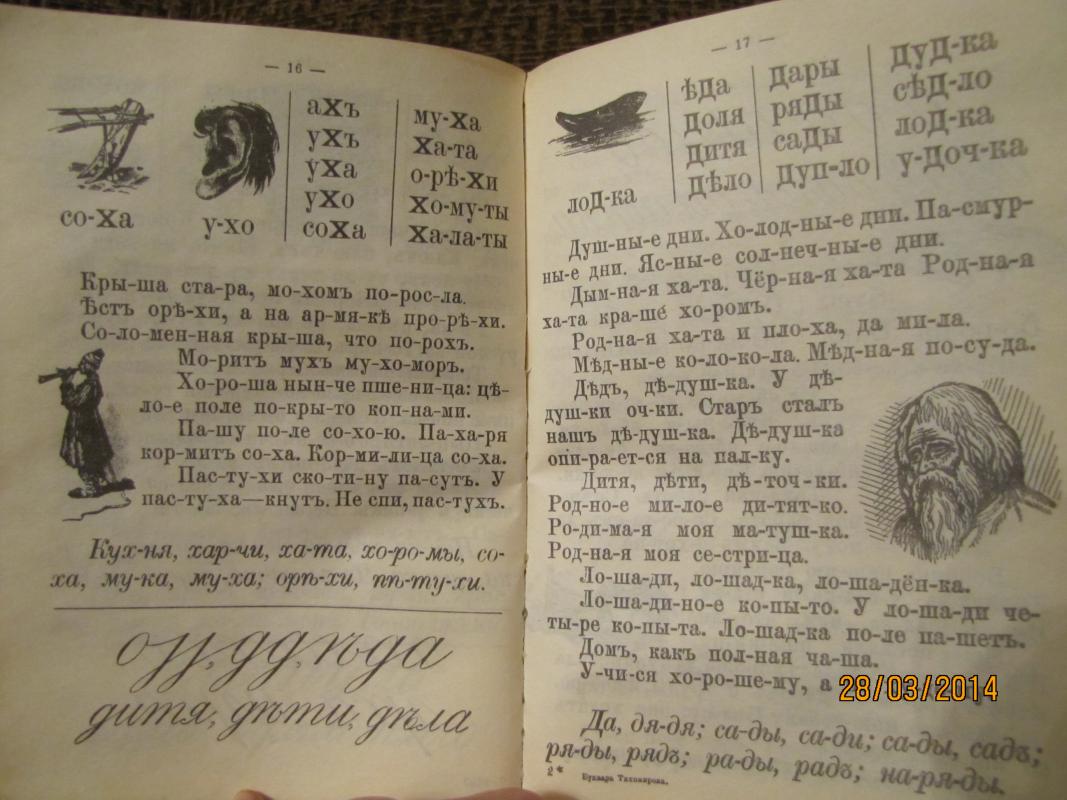 — 16 —
со-Ха
у-хо
аХъ
уХъ
уХа
уХо
соХа
му-Ха
Ха-та
о-рѣ-Хи
Хо-му-ты
Ха-ла-ты
Кры-ша ста-ра, мо-хомъ по-рос-ла.
Ѣстъ орѣ-хи, а на ар-мя-кѣ про-рѣ-хи.
Со-ло-мен-ная кры-ша, что по-рохъ.
Мо-ритъ мухъ му-хо-моръ.
Хо-ро-ша нын-че пше-ни-ца: цѣ-
ло-е поле по-кры-то коп-на-ми.
Па-шу по-ле со-хо-ю. Па-ха-ря
кор-митъ со-ха. Кор-ми-ли-ца со-ха.
Пас-ту-хи ско-ти-ну па-сутъ. У
пас-ту-ха—кнутъ. Не спи, пас-тухъ.
Кух-ня, хар-чи, ха-та, хо-ро-мы, со-
ха, му-ка, му-ха; орѣ-хи, пѣ-ту-хи.
дд, ѣда
дитя, дѣти, дѣла
— 17 —
лоД-ка
ѣДа
Доля
Дитя
Дѣло
Дары
ряДы
саДы
Дуп-ло
ДуД-ка
сѣД-ло
лоД-ка
у-Доч-ка
Душ-ны-е дни. Хо-лод-ны-е дни. Па-смур-
ны-е дни. Яс-ны-е сол-неч-ны-е дни.
Дым-на-я ха-та. Чёр-на-я ха-та Род-на-я
ха-та кра-ше хо-ромъ.
Род-на-я ха-та и пло-ха, да ми-ла.
Мѣд-ны-е ко-ло-ко-ла. Мѣд-на-я по-су-да.
Дѣдъ, дѣ-душ-ка. У дѣ-
душ-ки оч-ки. Старъ сталъ
нашъ дѣ-душ-ка. Дѣ-душ-ка
опи-ра-ет-ся на пал-ку.
Дитя, дѣти, дѣ-точ-ки.
Род-но-е ми-ло-е ди-тят-ко.
Ро-ди-ма-я моя ма-туш-ка.
Род-на-я моя се-стри-ца.
Ло-ша-ди, ло-шад-ка, ло-ша-дён-ка.
Ло-ша-ди-но-е ко-пы-то. У ло-ша-ди че-
ты-ре ко-пы-та. Ло-шад-ка по-ле па-шетъ.
Домъ, какъ пол-ная ча-ша.
У-чи-ся хо-ро-ше-му, а
28/03/2014
Да, дя-дя; са-ды, са-ди; са-ды, садъ;
ря-ды, рядъ; ра-ды, радъ; на-ря-ды.
2* Букварь Тихомирова.